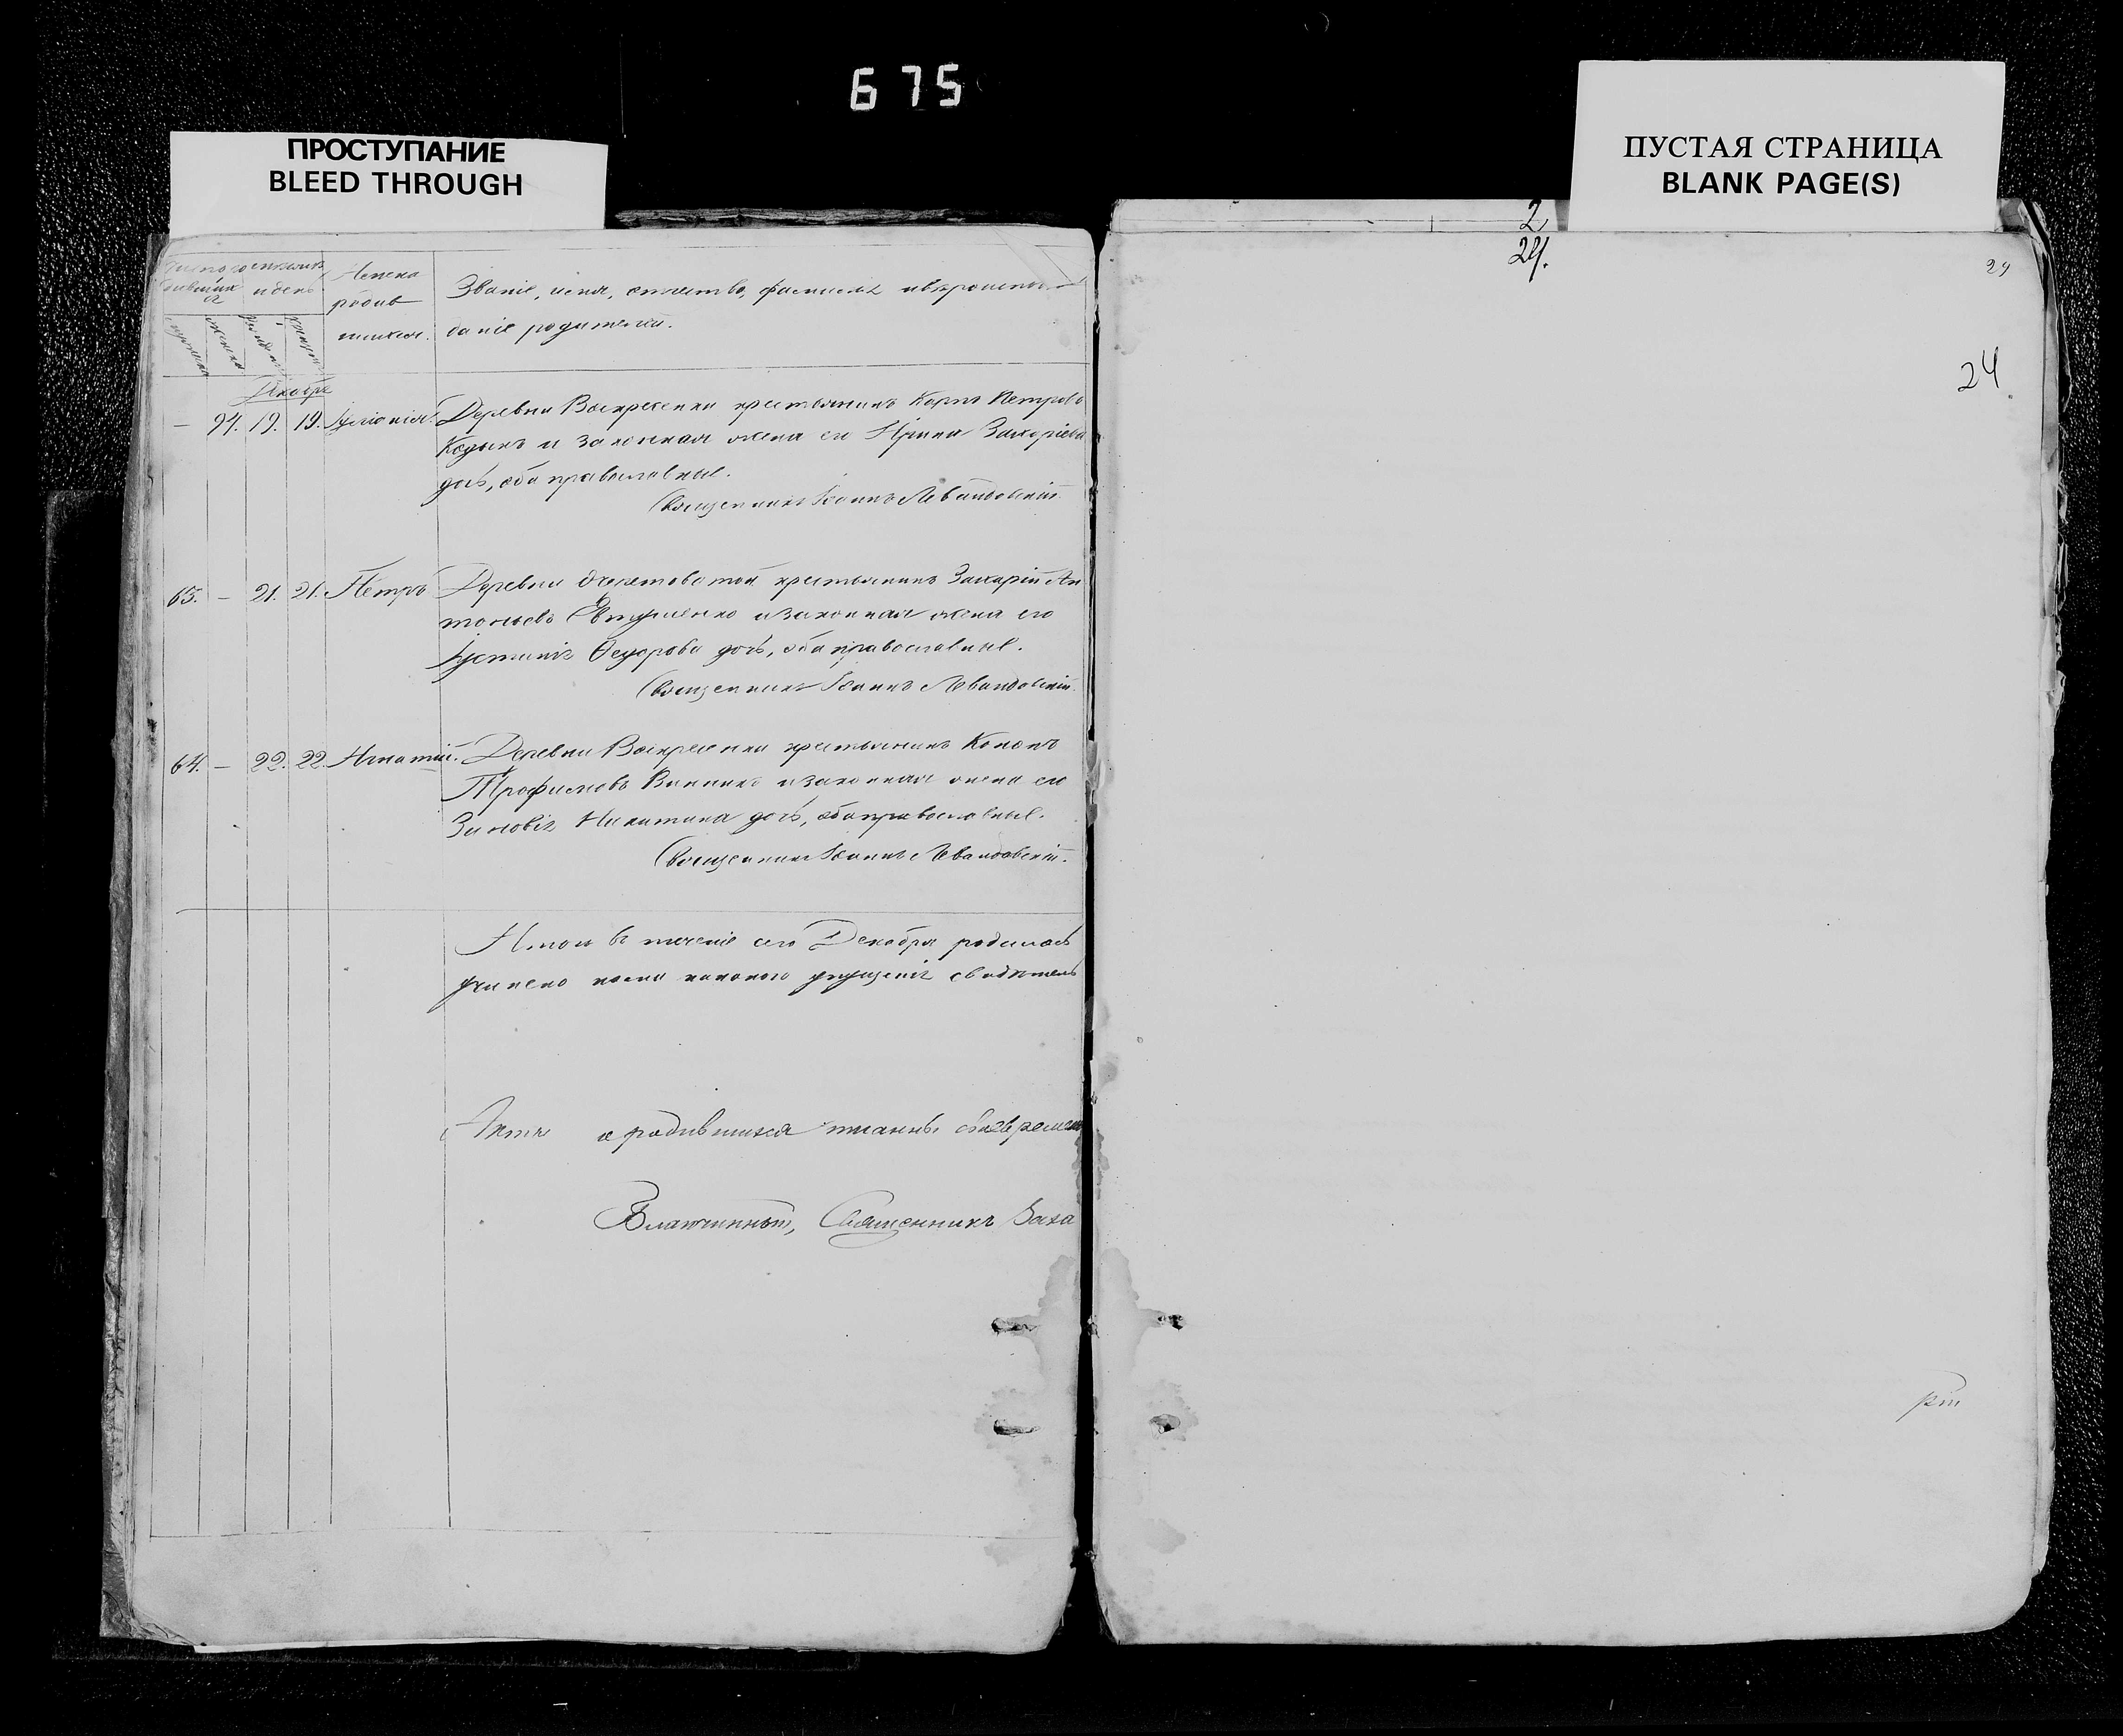 675
ПРОСТУПАНИЕ
BLEED THROUGH
ПУСТАЯ СТРАНИЦА
BLANK PAGE(S)
2
24.
24
24
Имена
родив
шихся.
и день
Званіе, имя, отчество, фамилія и вѣроиспо
даніе родителей.
Декабрь
— 94. 19. 19. Деревни Воскресенки крестьянинъ Карпъ Петровъ
и законная жена его Ирина Захаріева
дочь, оба православные.
Священникъ Іоаннъ Левандовскій
63. — 21. 21. Петръ Деревни крестьянинъ Захарій Ан
тоньевъ Евтушенко и законная жена его
Іустинія Ѳедорова дочь, оба православные.
Священникъ Іоаннъ Левандовскій
64. — 22. 22. Игнатій. Деревни Воскресенки крестьянинъ Кононъ
Трофимовъ Винникъ и законная жена его
Зиновія Никитина дочь, оба православные.
Священникъ Іоаннъ Левандовскій.
Итого въ теченіе сего Декабря родилось
упущенія свидѣтель
о родившихся писаны
Благочинный, Священникъ Заха
рій